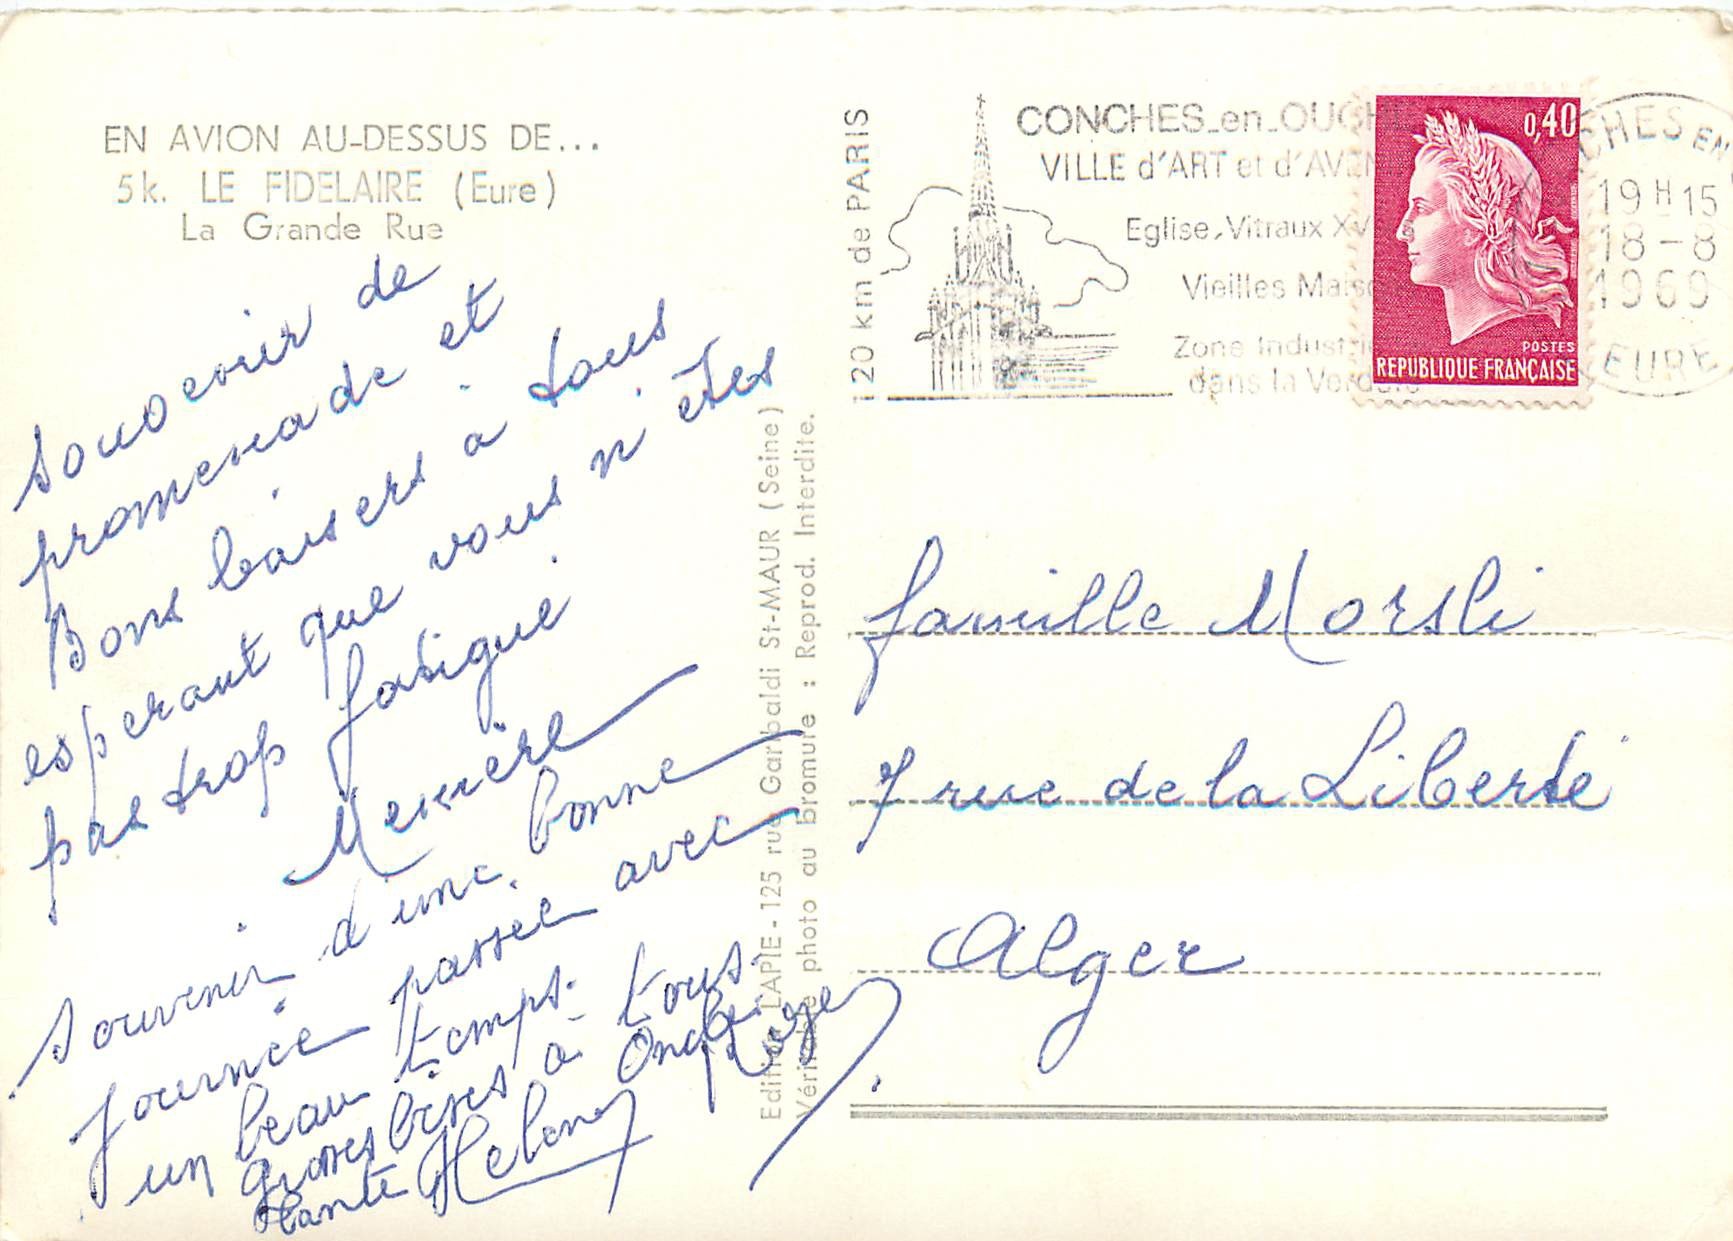 EN AVION AU-DESSUS DE...
5k. LE FIDELAIRE (Eure)
La Grande Rue
Souvenir de
promenade et
Bons baisers à tous
espérant que vous n'êtes
pas trop fatigué
souvenir d'une bonne
journée passée avec
un beau temps.
grosses bises à tous.
tante Helene Oncle Roger
Edition LAPIE - 125 rue Garibaldi St-MAUR (Seine)
Véritable photo au bromure : Reprod. Interdite.
120 km de PARIS
CONCHES-en-OUCHE
VILLE d'ART et d'AVEN
Eglise, Vitraux XV
Vieilles Maiso
Zone Industrie
dans la Verdure
0,40
POSTES
REPUBLIQUE FRANÇAISE
CHES EN
19H15
18-8
1969
EURE
famille Morsli
7 rue de la Liberté
Alger